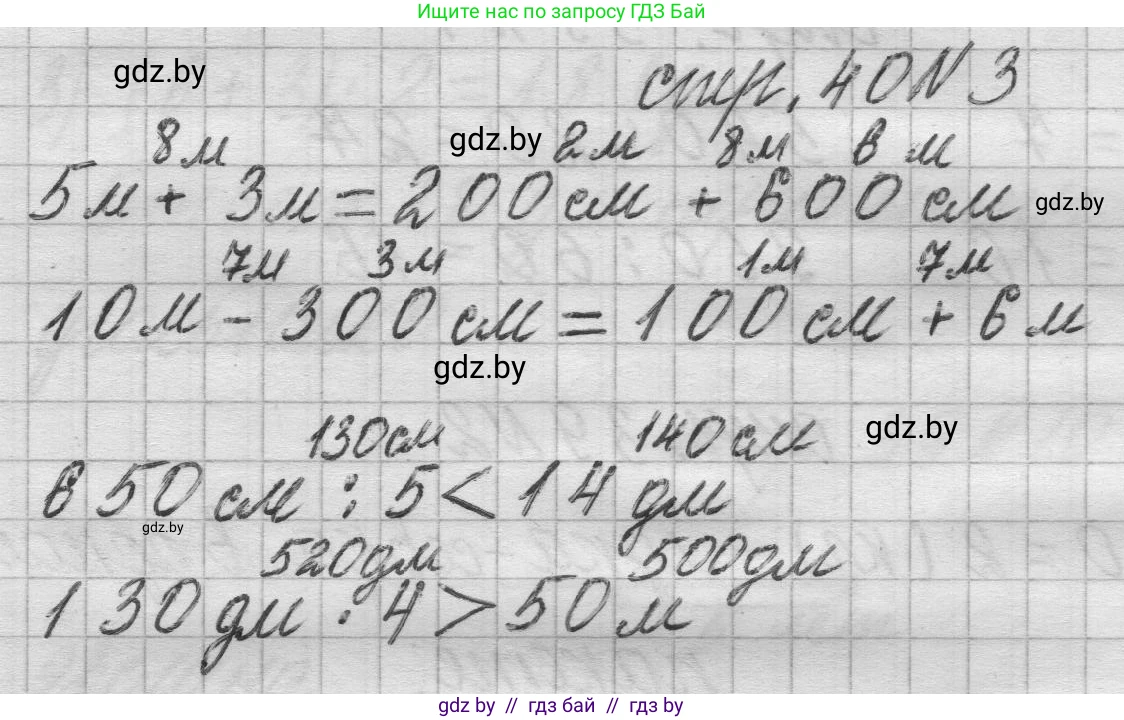 Ищите нас по запросу ГДЗ Бай
gdz.by
стр. 40 N 3
8м gdz.by 2м 8м 6м
5м + 3м = 200см + 600см gdz.by
7м 3м 1м 7м
10м - 300см = 100см + 6м
gdz.by
130см 140см gdz.by
650см : 5 < 14дм
gdz.by
520дм 500дм
130дм · 4 > 50м
gdz.by // гдз бай // гдз.by